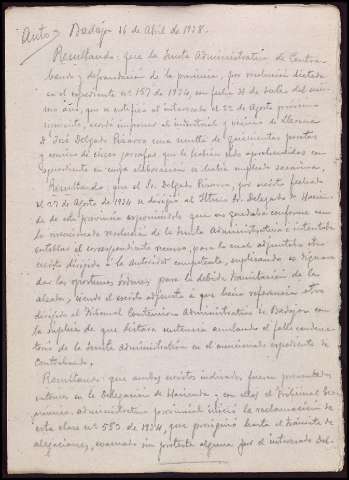 Auto = Badajoz 26 de Abril de 1928.
Resultando: que la Junta Administrativa de Contra-
bando y defraudación de la provincia, por resolución dictada
en el expediente nº 157 de 1924, con fecha de Julio del mis-
mo año, que se notificó al interesado el 22 de Agosto próximo
acordó imponer al industrial y vecino de Llerena
D. José Delgado Pizarro una multa de quinientas pesetas
y comiso de cinco que le habían sido aprehendidas con
en cuya elaboración se había empleado sacarina.
Resultando: que el Sr. Delgado Pizarro, por escrito fechado
el 27 de Agosto de 1924 se dirigió al Iltmo Sr. Delegado de Hacien-
da de esta provincia exponiéndole que no quedaba conforme con
la mencionada resolución de la Junta Administrativa e intentaba
entablar el correspondiente recurso, para lo cual adjuntaba otro
escrito dirigido a la autoridad competente, suplicando se dignara
dar las oportunas órdenes para la debida tramitación de la
alzada, siendo el escrito adjunto a que hacía referencia otro
dirigido al Tribunal Contencioso Administrativo de Badajoz con
la súplica de que dictara sentencia anulando el fallo condena-
torio de la Junta administrativa en el mencionado expediente de
Contrabando.
Resultando: que ambos escritos indicados fueron presentados
en la Delegación de Hacienda y con ellos el Tribunal Eco-
nómico administrativo provincial inició la reclamación de
esta clase nº 583 de 1924, que prosiguió hasta el trámite de
alegaciones, evacuado sin protesta alguna por el interesado Del-